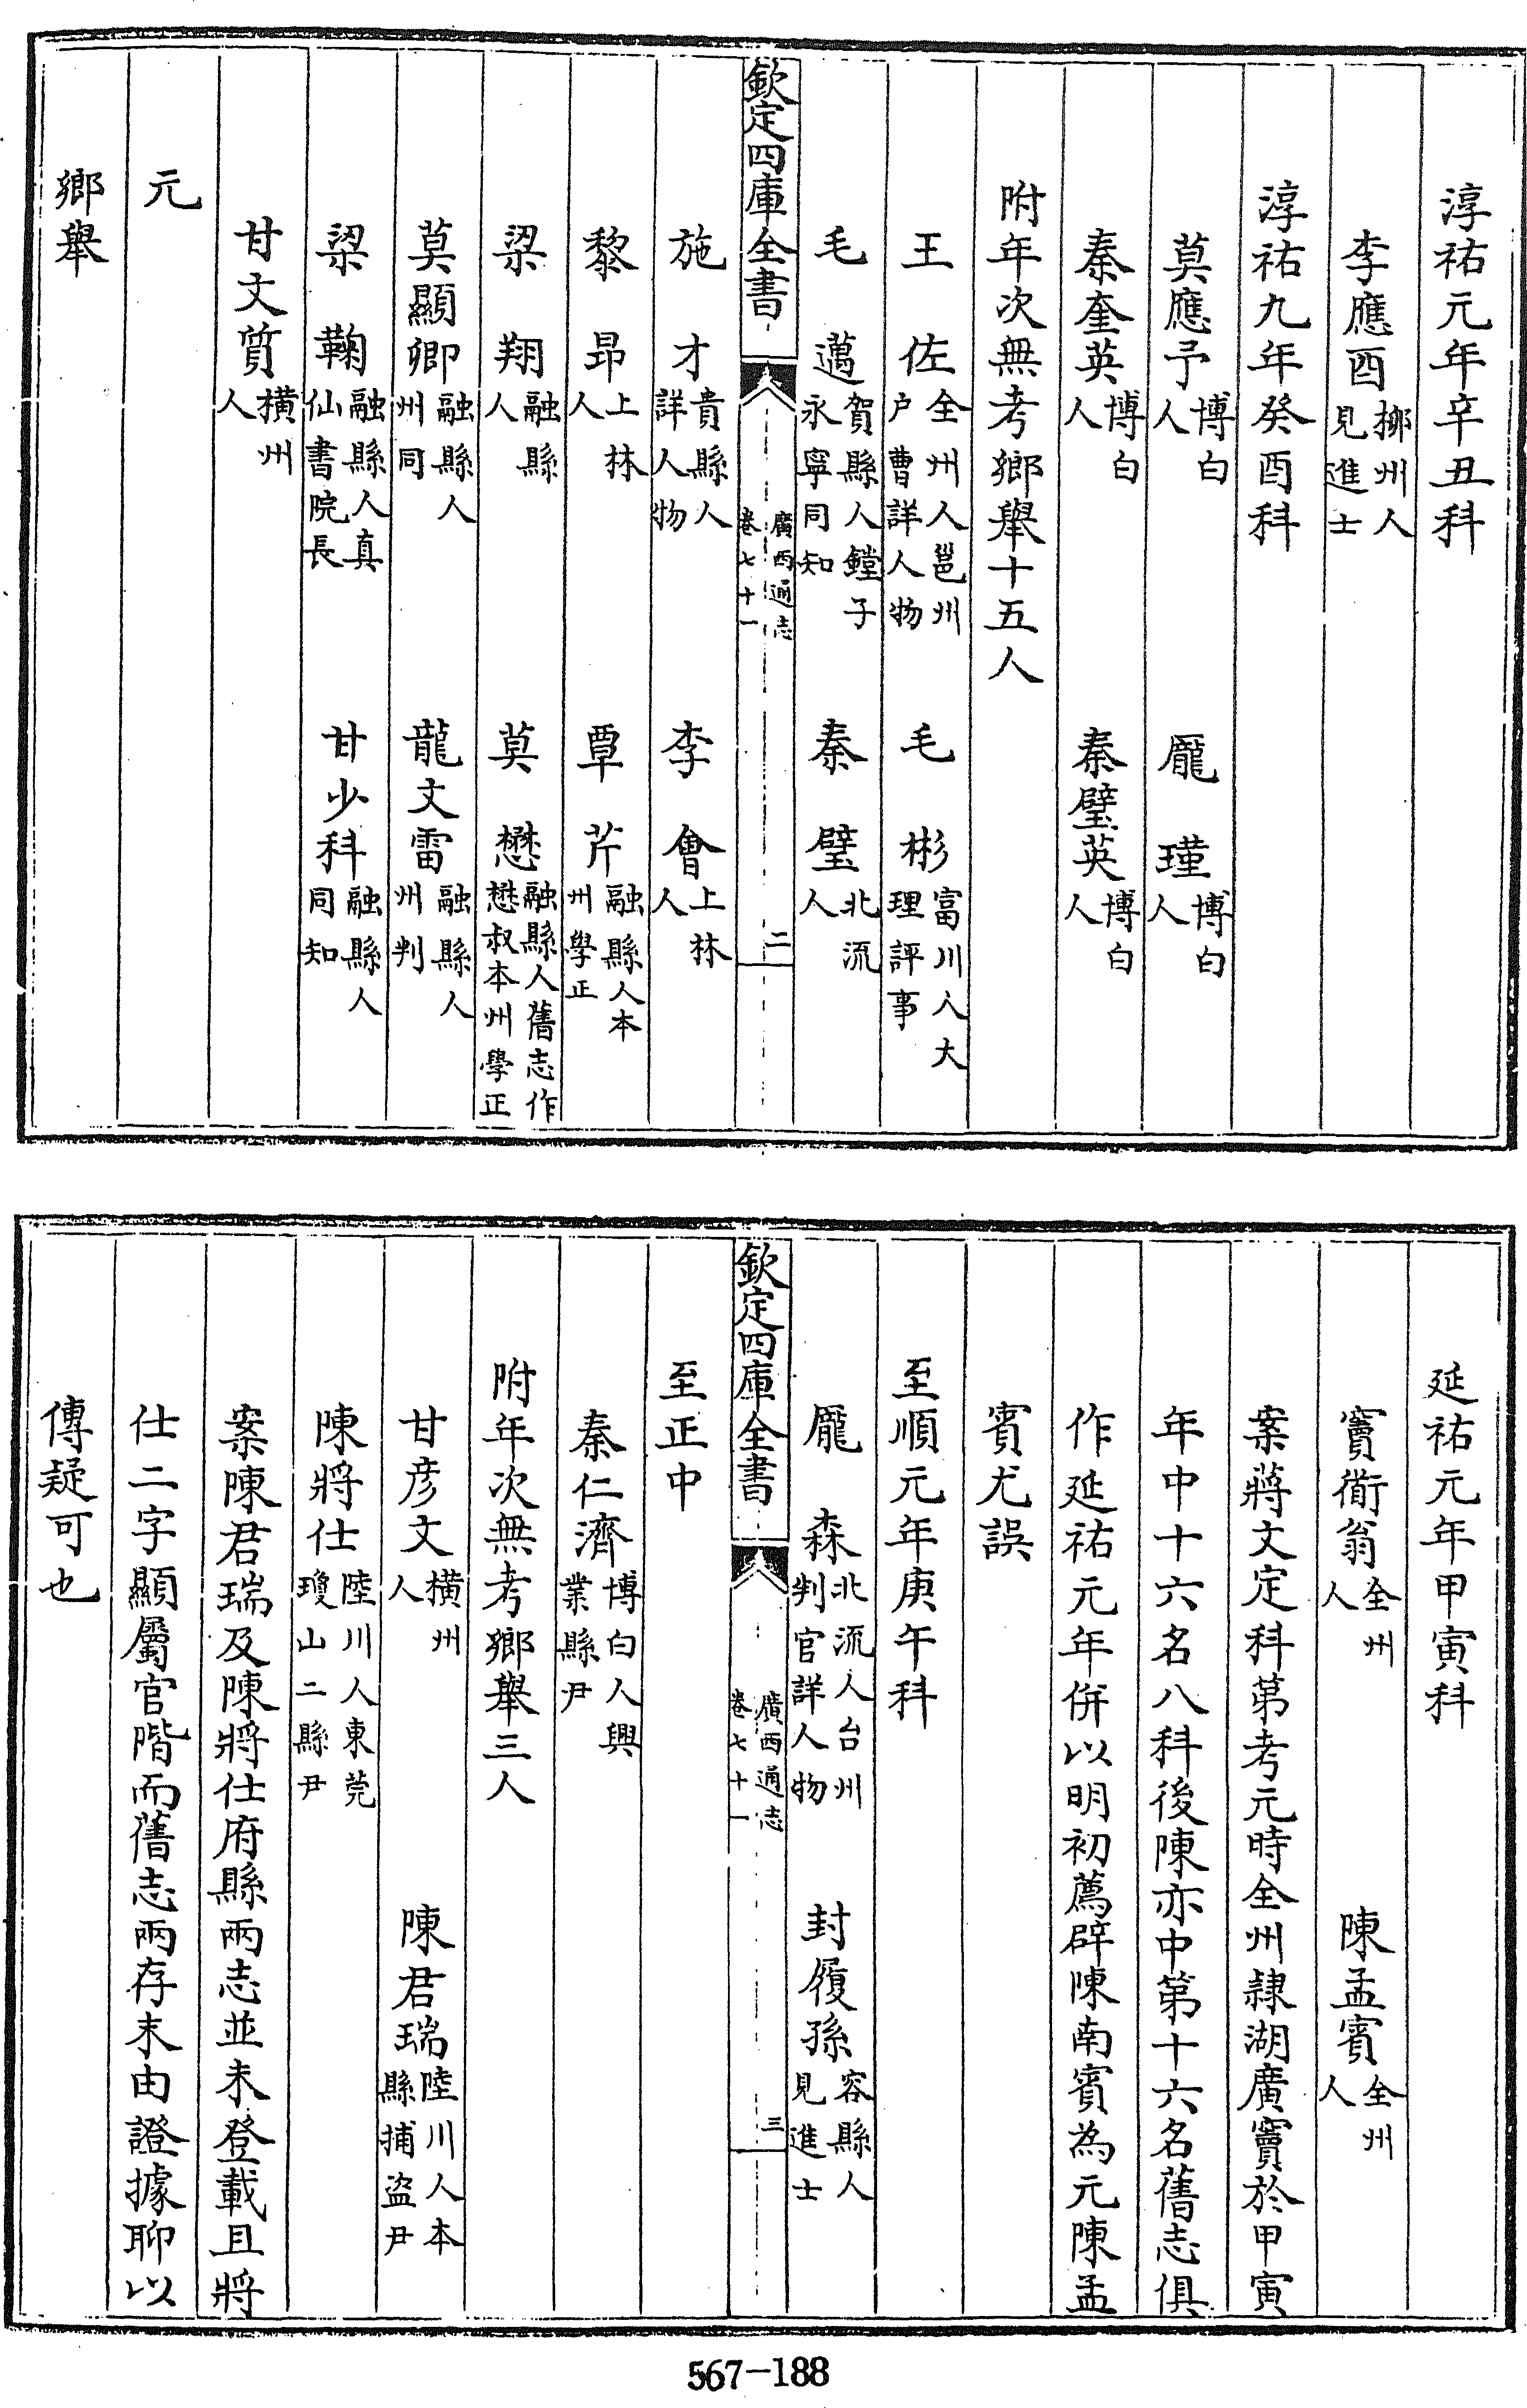 淳祐元年辛丑科
李應酉桞州人見進士
淳祐九年癸酉科
莫應予博白人 龎瑾博白人
秦奎英博白人 秦璧英博白人
附年次無考鄉舉十五人
王佐全州人邕州户曹詳人物 毛彬富川人大理評事
毛邁賀縣人鏜子永寧同知 秦璧北流人
欽定四庫全書 廣西通志卷七十一 二
施才貴縣人詳人物 李會上林人
黎昂上林人 覃芹融縣人本州學正
梁翔融縣人 莫懋融縣人舊志作懋叔本州學正
莫顯卿融縣人州同 龍文雷融縣人州判
梁鞠融縣人真仙書院長 甘少科融縣人同知
甘文質橫州人
元
鄉舉
延祐元年甲寅科
竇衜翁全州人 陳孟賓全州人
案蔣文定科第考元時全州隷湖廣竇於甲寅
年中十六名八科後陳亦中第十六名舊志俱
作延祐元年併以明初薦辟陳南賓為元陳孟
賓尤誤
至順元年庚午科
龎森北流人台州判官詳人物 封履孫容縣人見進士
欽定四庫全書 廣西通志卷七十一 三
至正中
秦仁濟博白人興業縣尹
附年次無考鄉舉三人
甘彦文橫州人 陳君瑞陸川人本縣捕盗尹
陳將仕陸川人東莞瓊山二縣尹
案陳君瑞及陳將仕府縣兩志並未登載且將
仕二字顯屬官階而舊志兩存末由證據聊以
傳疑可也
567-188